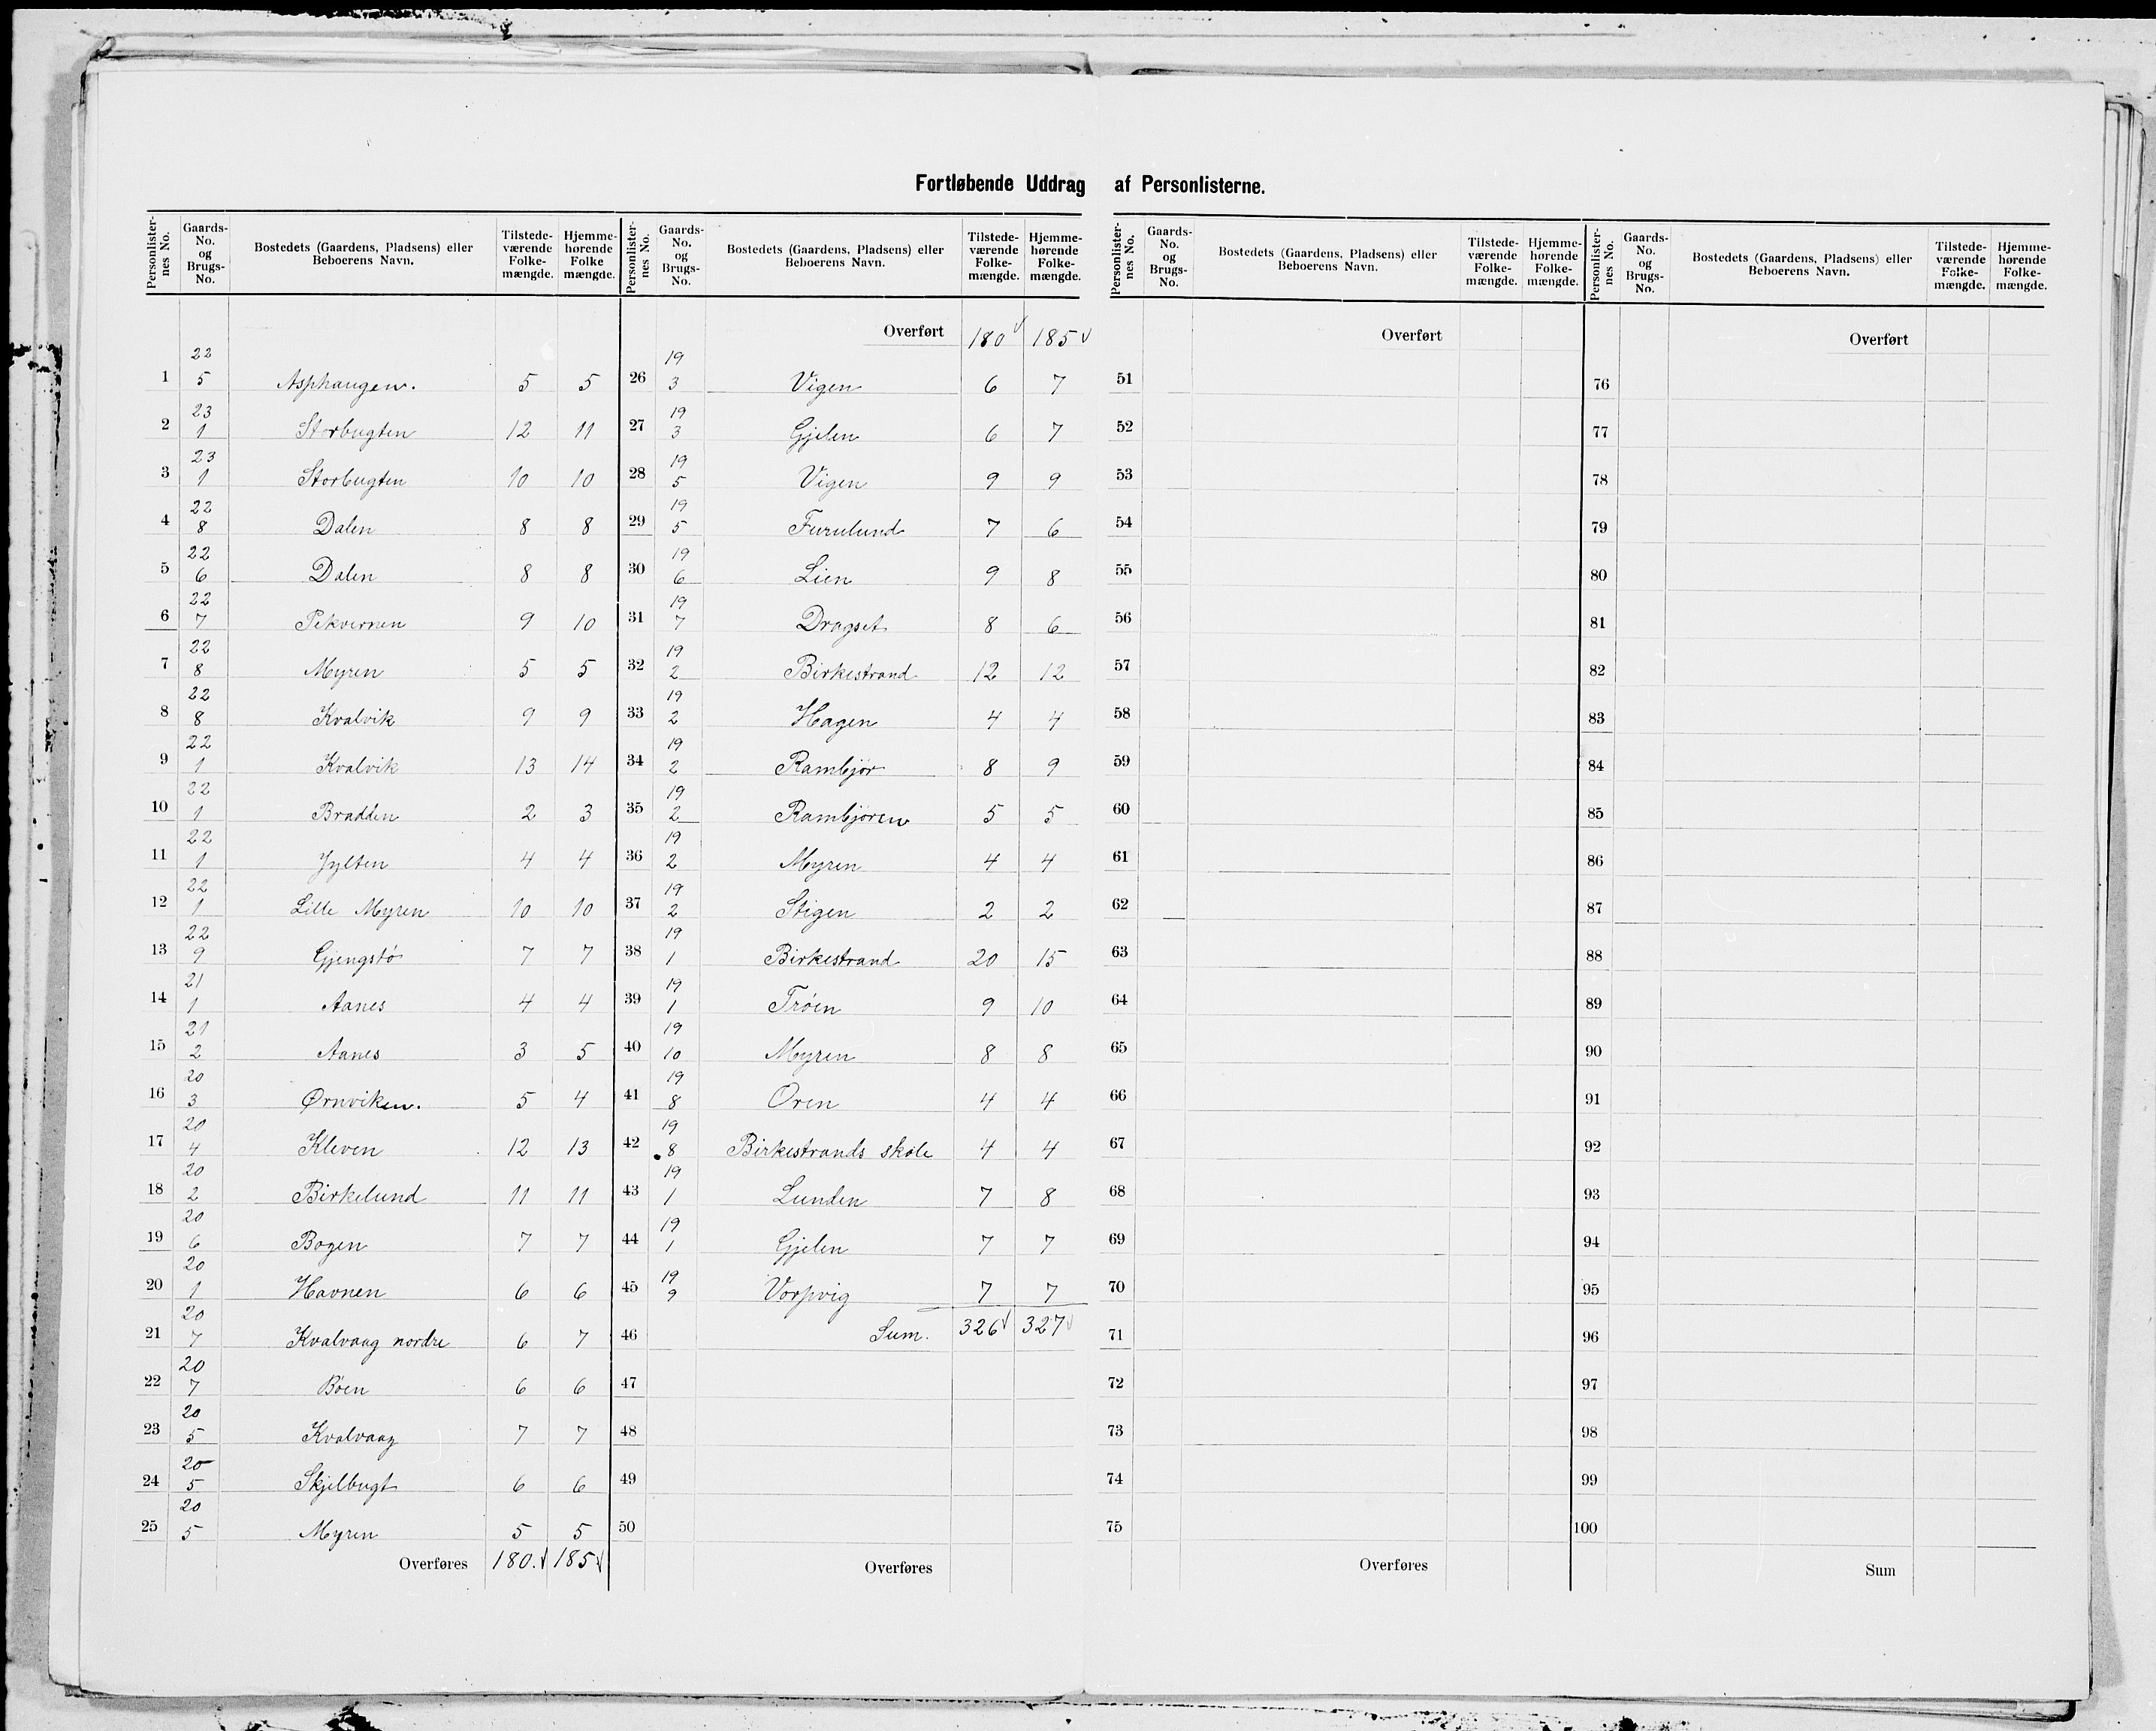 Fortløbende Uddrag af Personlisterne.
Personlister-nes No. Gaards-No. og Brugs-No. Bostedets (Gaardens, Pladsens) eller Beboerens Navn. Tilstede-værende Folke-mængde. Hjemme-hørende Folke mængde.
1 22 5 Asphaugen. 5 5
2 23 1 Storbugten 12 11
3 23 1 Storbugten 10 10
4 22 8 Dalen 8 8
5 22 6 Dalen 8 8
6 22 7 Pekvernen 9 10
7 22 8 Myren 5 5
8 22 8 Kvalvik 9 9
9 22 1 Kvalvik 13 14
10 22 1 Bradden 2 3
11 22 1 Jylten 4 4
12 22 1 Lille Myren 10 10
13 22 9 Gjengstø 7 7
14 21 1 Aanes 4 4
15 21 2 Aanes 3 5
16 20 3 Ørnviken. 5 4
17 20 4 Kleven 12 13
18 20 2 Birkelund 11 11
19 20 6 Bogen 7 7
20 20 1 Havnen 6 6
21 20 7 Kvalvaag nordre 6 7
22 20 7 Böen 6 6
23 20 5 Kvalvaag 7 7
24 20 5 Skjelbugt 6 6
25 20 5 Myren 5 5
Overføres 180. 185
Personlister-nes No. Gaards-No. og Brugs-No. Bostedets (Gaardens, Pladsens) eller Beboerens Navn. Tilstede-værende Folke-mængde. Hjemme-hørende Folke-mængde.
Overført 180 185
26 19 3 Vigen 6 7
27 19 3 Gjelen 6 7
28 19 5 Vigen 9 9
29 19 5 Furulund 7 6
30 19 6 Lien 9 8
31 19 7 Dragset 8 6
32 19 2 Birkestrand 12 12
33 19 2 Hagen 4 4
34 19 2 Rambjör 8 9
35 19 2 Rambjören 5 5
36 19 2 Myren 4 4
37 19 2 Stigen 2 2
38 19 1 Birkestrand 20 15
39 19 1 Tröen 9 10
40 19 10 Myren 8 8
41 19 8 Oren 4 4
42 19 8 Birkestrands skole 4 4
43 19 1 Lunden 7 8
44 19 1 Gjelen 7 7
45 19 9 Vorpvig 7 7
46 Sum. 326 327
47
48
49
50
Overføres
Personlister-nes No. Gaards-No. og Brugs-No. Bostedets (Gaardens, Pladsens) eller Beboerens Navn. Tilstede-værende Folke-mængde. Hjemme-hørende Folke-mængde.
Overført
51
52
53
54
55
56
57
58
59
60
61
62
63
64
65
66
67
68
69
70
71
72
73
74
75
Overføres
Personlister-nes No. Gaards-No. og Brugs-No. Bostedets (Gaardens, Pladsens) eller Beboerens Navn. Tilstede-værende Folke-mængde. Hjemme-hørende Folke-mængde.
Overført
76
77
78
79
80
81
82
83
84
85
86
87
88
89
90
91
92
93
94
95
96
97
98
99
100
Sum